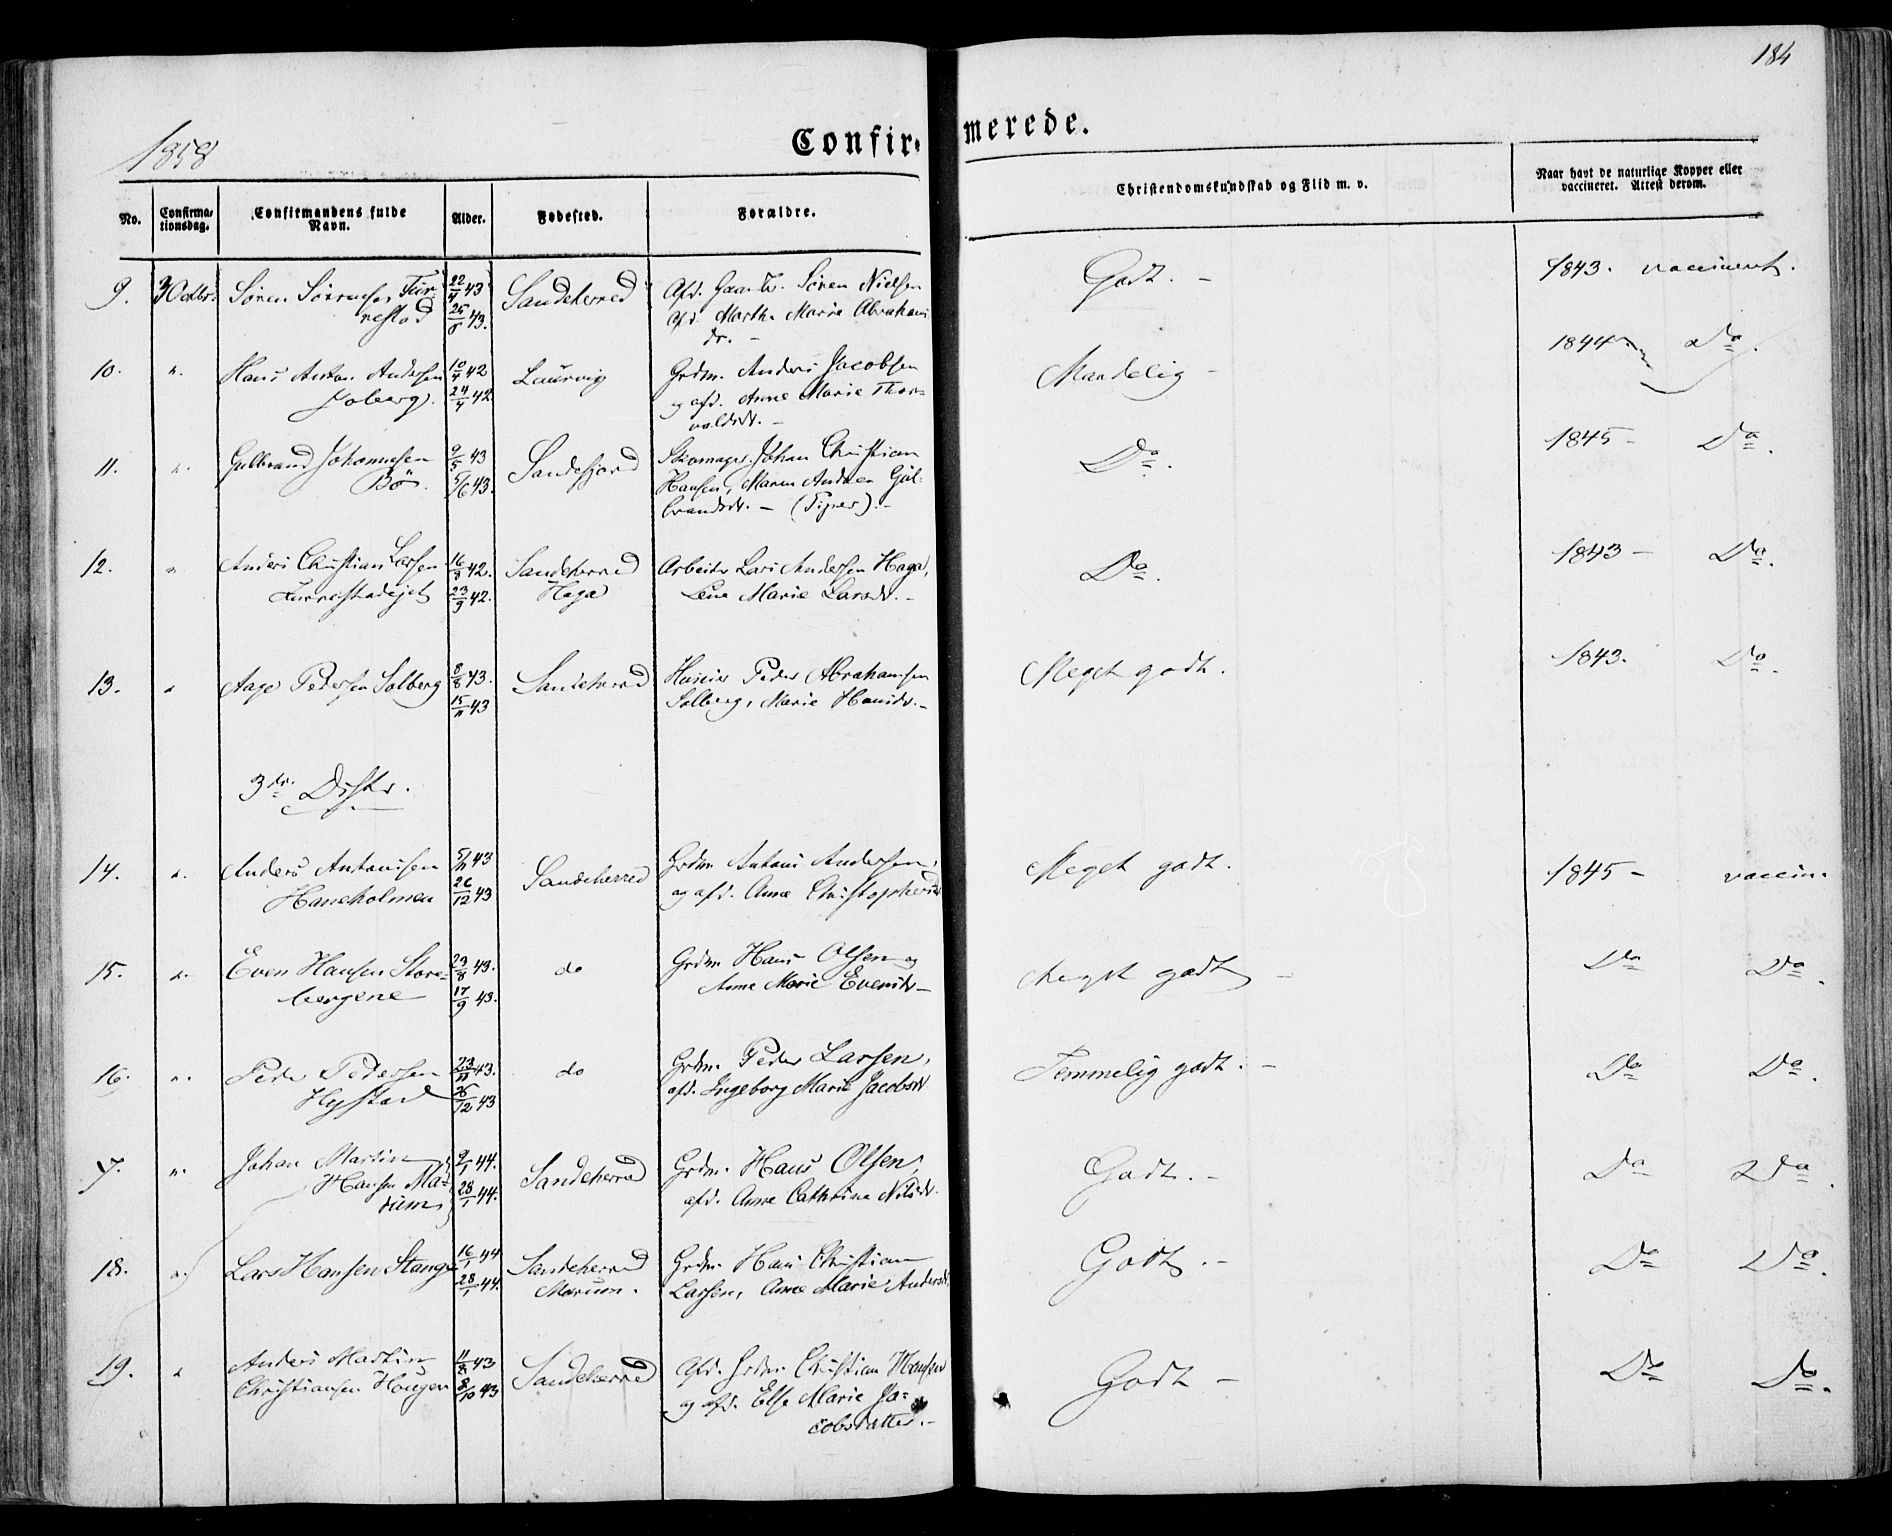 184
1858
Confirmerede.
No. Confirmationsdag. Confirmandens fulde Navn. Alder. Fødested. Forældre. Christendomskundskab og Flid m. v. Naar havt de naturlige Kopper eller vaccineret. Attest derom.
9. 3 Octbr. Søren Sørensen Fur- 22/4 43 Sandeherred Afd. Søren Nielsen Godt. - 1843. vaccineret.
restad 43. Afd. Marthe Marie Abrahams
dr. -
10. " Hans Anton Andersen 10/4 42 Laurvig Grdm. Anders Jacobsen Maadelig - 1844 Do.
24/4 42 og afd. Anne Marie Thor-
valdsdr. -
11. " Gulbrand Johannesen 9/5 43 Sandefjord Skomager Johan Christian Do. 1845 - Do.
Bø. 5/6 43. Hansen, Maren Andrea Gul-
brandsdr. -
12. " Anders Christian Larsen 16/8 42. Sandeherred Arbeider Lars Andersen Haga, Do. 1843 - Do.
Furrestadejet 23/9 42. Haga Lene Marie Larsdr. -
13. " Aage Pedersen Solberg 8/8 43. Sandeherred Huseier Peder Abrahamsen Meget godt. 1843. Do.
15/11 43 Solberg, Marie Hansdr. -
3die Distr.
14. " Anders Antonisen 5/11 43 Sandeherred Grdm. Antoni Andersen, Meget godt. 1845 - vaccin.
Haneholmen 26/12 43 og afd. Anne Christophersdr
15. " Even Hansen Store- 23/8 43. do Grdm. Hans Olsen og Meget godt - Do Do.
bergene 17/9 43. Anne Marie Evensdr -
16. " Peder Pedersen 23/11 43. do Grdm. Peder Larsen, Temmelig godt. - Do Do.
Hystad 26/12 43 afd. Ingeborg Marie Jacobsdr
17. " Johan Martin 9/1 44. Sandeherred Grdm. Hans Olsen, Godt. - Do Do.
Hansen Ma- 28/1 44. afd. Anne Cathrine Nilsdr.
rum
18. " Lars Hansen Stange 16/1 44 Sandeherred Grdm. Hans Christian Godt. - Do Do.
28/1 44. Marum. Larsen, Anne Marie Andersdr.
19. " Anders Martin 11/8 43 Sandeherred Afd. Grdm. Christian Hansen Godt - Do Do.
Christiansen Haugen 8/10 43 og afd. Else Marie Ja-
cobsdatter. -